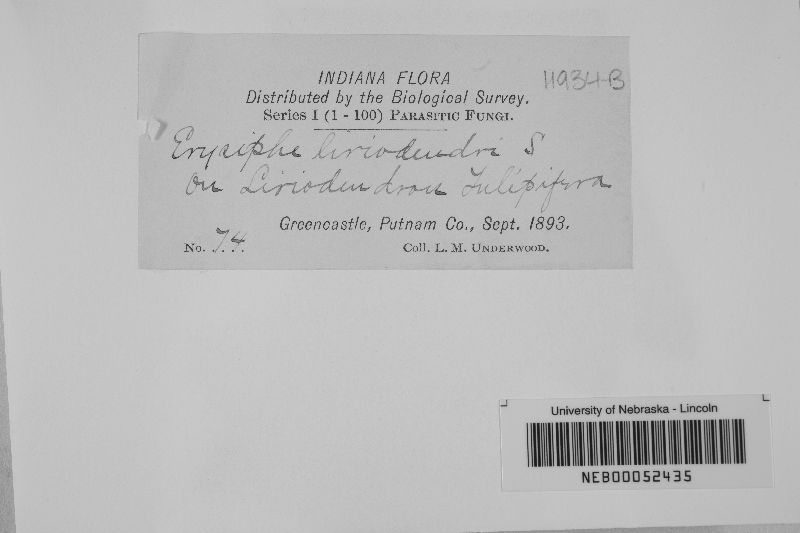 INDIANA FLORA
119348
Distributed by the Biological Survey.
Series I (1 - 100) PARASITIC FUNGI.
Erysiphe liriodendri S
On Liriodendron Tulipifera
Greencastle, Putnam Co., Sept. 1893.
No. 74. Coll. L. M. UNDERWOOD.
University of Nebraska - Lincoln
NEB00052435